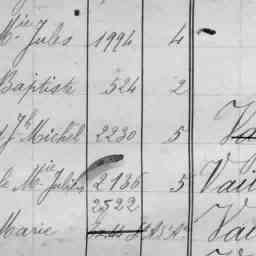 Mie Jules 1994 4
Baptiste 524 2
Jh Michel 2230 5 Va
Mie Jules 2136 5 Vail
2522
Marie Vai